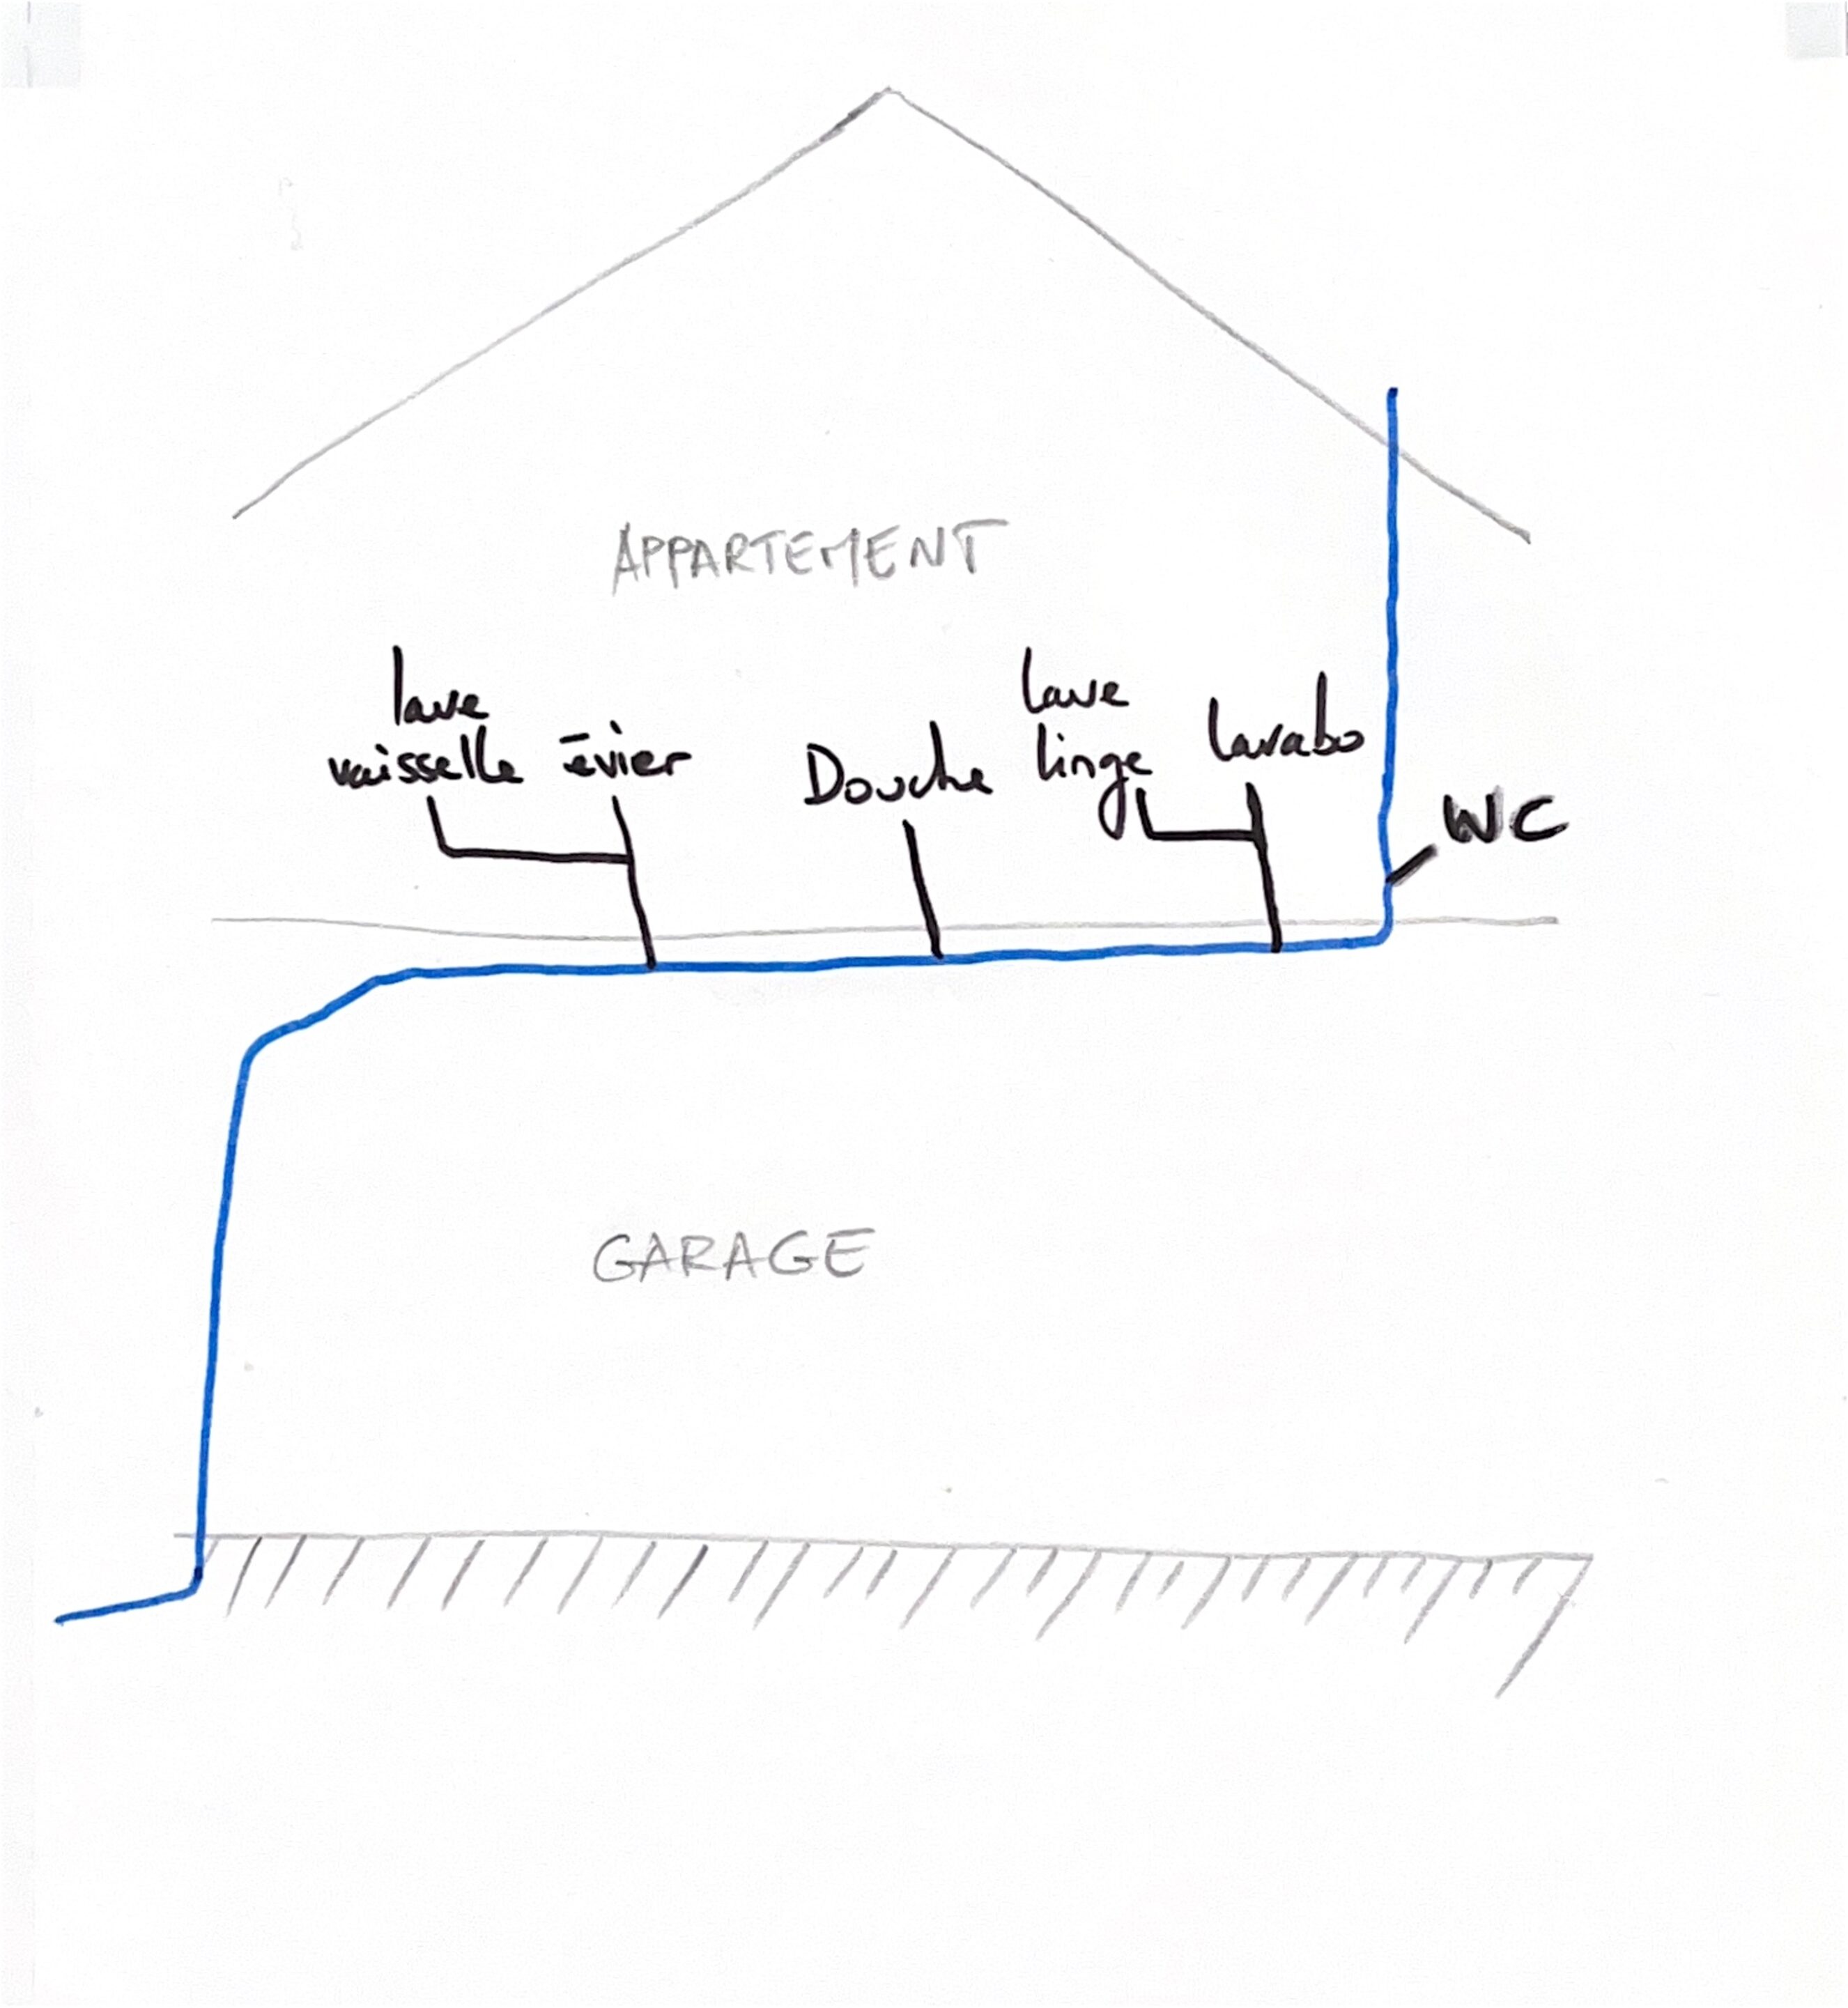 APPARTEMENT
lave
vaisselle
évier
Douche
lave
linge
lavabo
WC
GARAGE